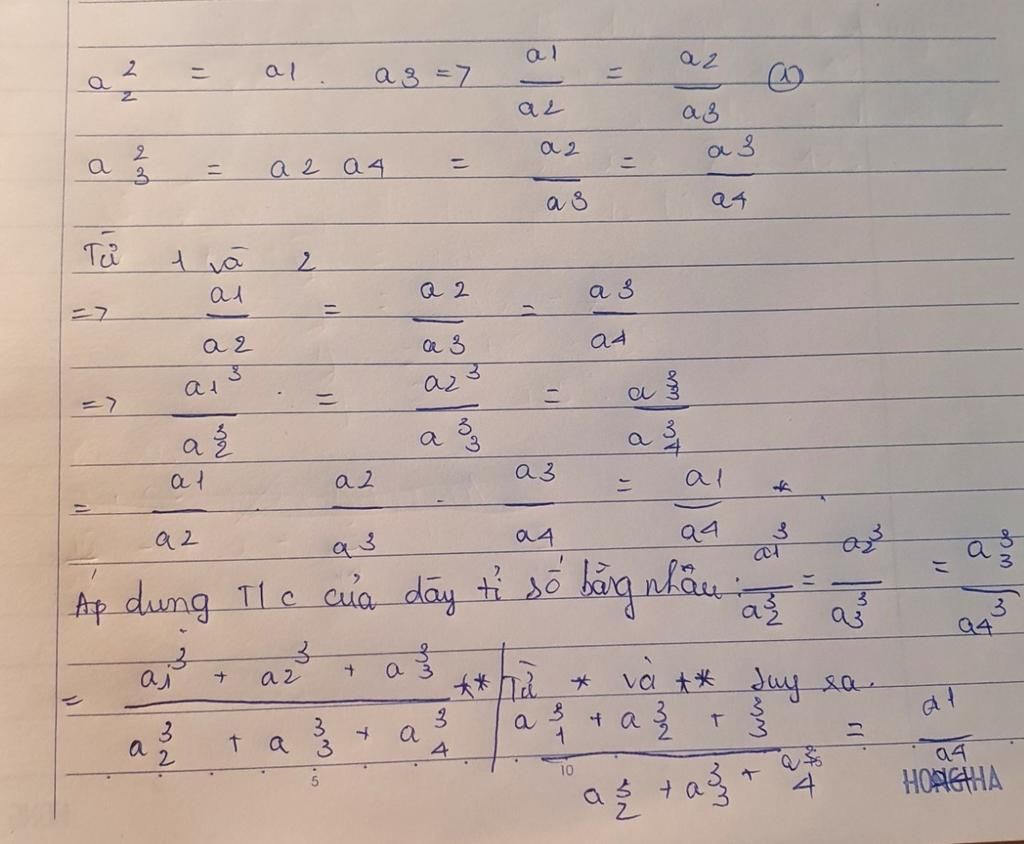 a₂² = a1 . a3 => a1/a2 = a2/a3 ①
a₃² = a2 a4 = a2/a3 = a3/a4
Từ 1 và 2
=> a1/a2 = a2/a3 = a3/a4
=> a1³/a₂³ = a2³/a₃³ = a₃³/a₄³
= a1/a2 . a2/a3 . a3/a4 = a1/a4 *
Áp dung T/c của dãy tỉ số bằng nhau: a1³/a₂³ = a2³/a₃³ = a₃³/a4³
= (a1³ + a2³ + a₃³)/(a₂³ + a₃³ + a₄³) **
Từ * và ** suy ra.
(a₁³ + a₂³ + ₃³)/(a₂³ + a₃³ + a₄³) = a1/a4
5
10
HONG HA